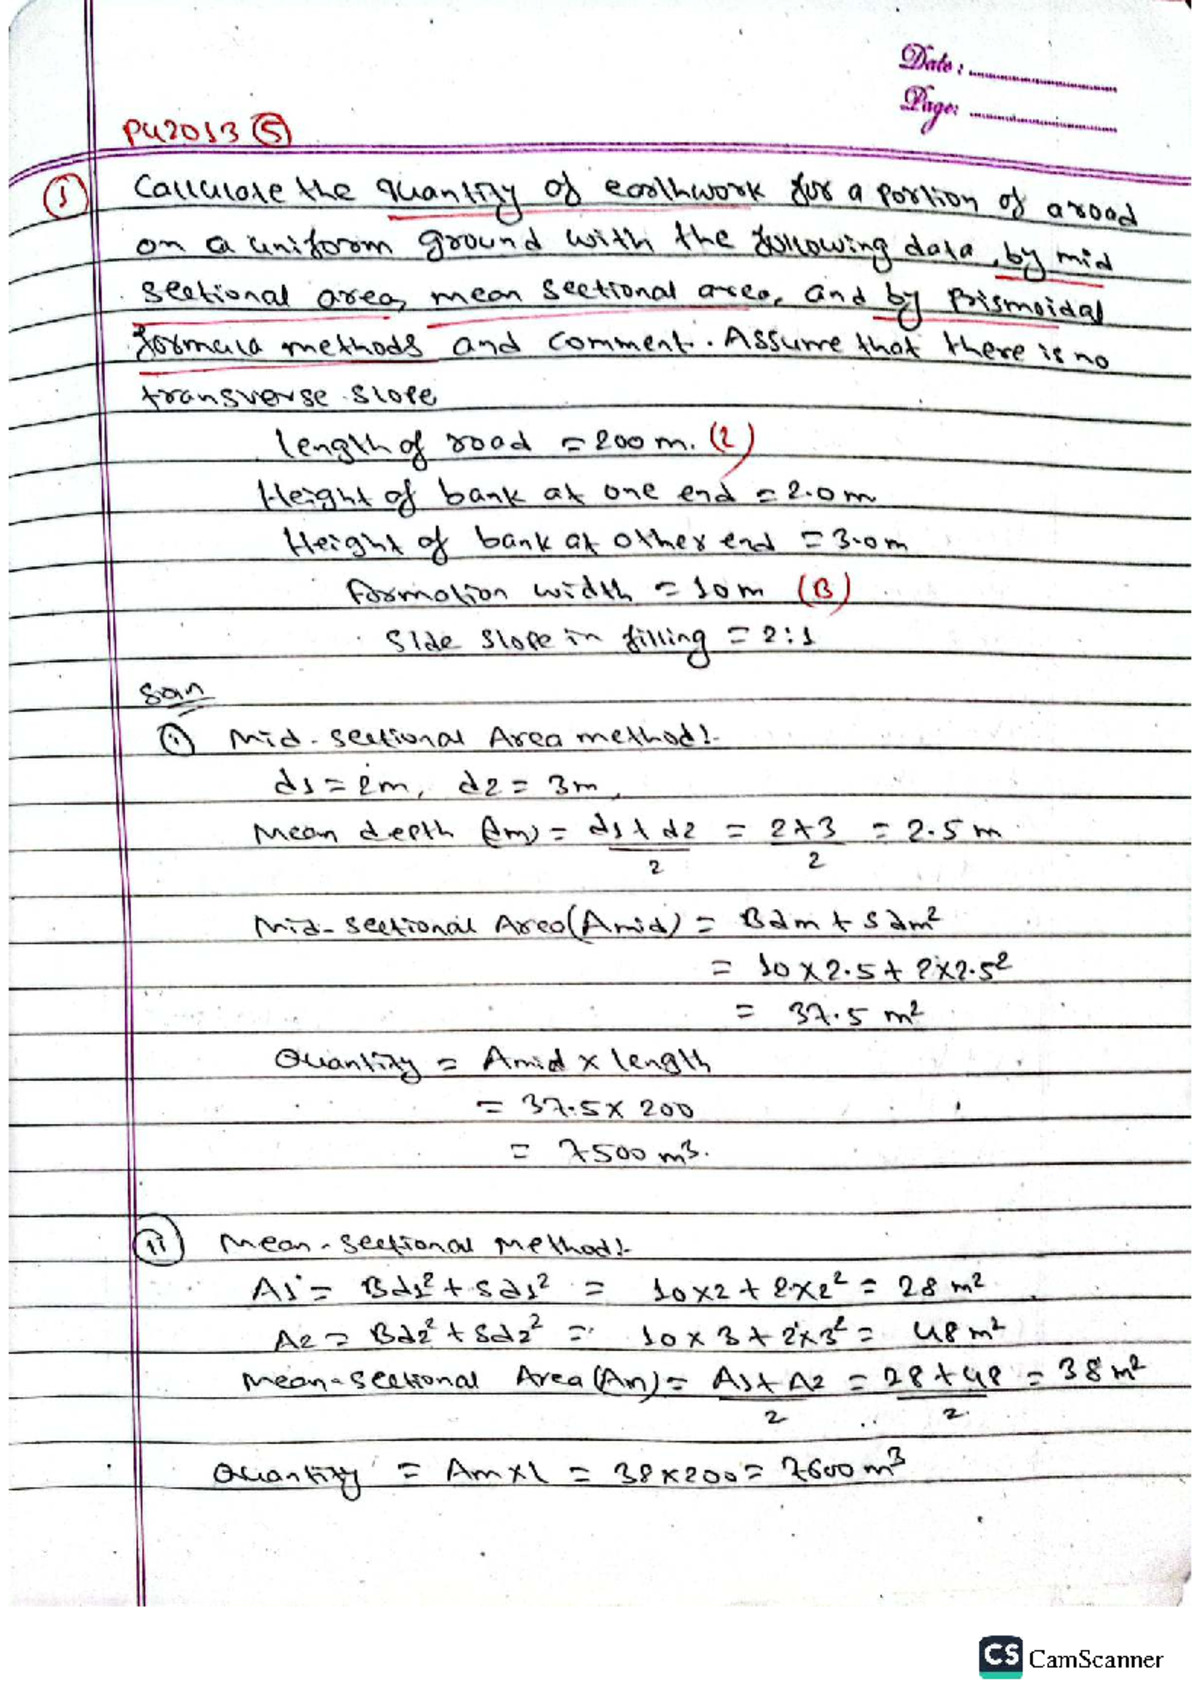 Date: ....................
Page: ....................
PU2013 (5)
(1) Calculate the quantity of earthwork for a portion of a road
on a uniform ground with the following data, by mid
sectional area, mean sectional area, and by Prismoidal
formula methods and comment. Assume that there is no
transverse slope
length of road = 200 m. (L)
Height of bank at one end = 2.0 m
Height of bank at other end = 3.0 m
formation width = 10 m (B)
Side slope in filling = 2:1
Soln
(i) Mid-sectional Area method:-
d1 = 2m, d2 = 3m,
Mean depth (dm) = d1 + d2 / 2 = 2+3 / 2 = 2.5 m
Mid-sectional Area (Amid) = Bdm + Sdm²
= 10 x 2.5 + 2x2.5²
= 37.5 m²
Quantity = Amid x length
= 37.5 x 200
= 7500 m³.
(ii) Mean-sectional method:-
A1 = Bd1² + Sd1² = 10x2 + 2x2² = 28 m²
A2 = Bd2² + Sd2² = 10 x 3 + 2x3² = 48 m²
Mean-sectional Area (Am) = A1 + A2 / 2 = 28 + 48 / 2 = 38 m²
Quantity = Am x L = 38 x 200 = 7600 m³
CS CamScanner